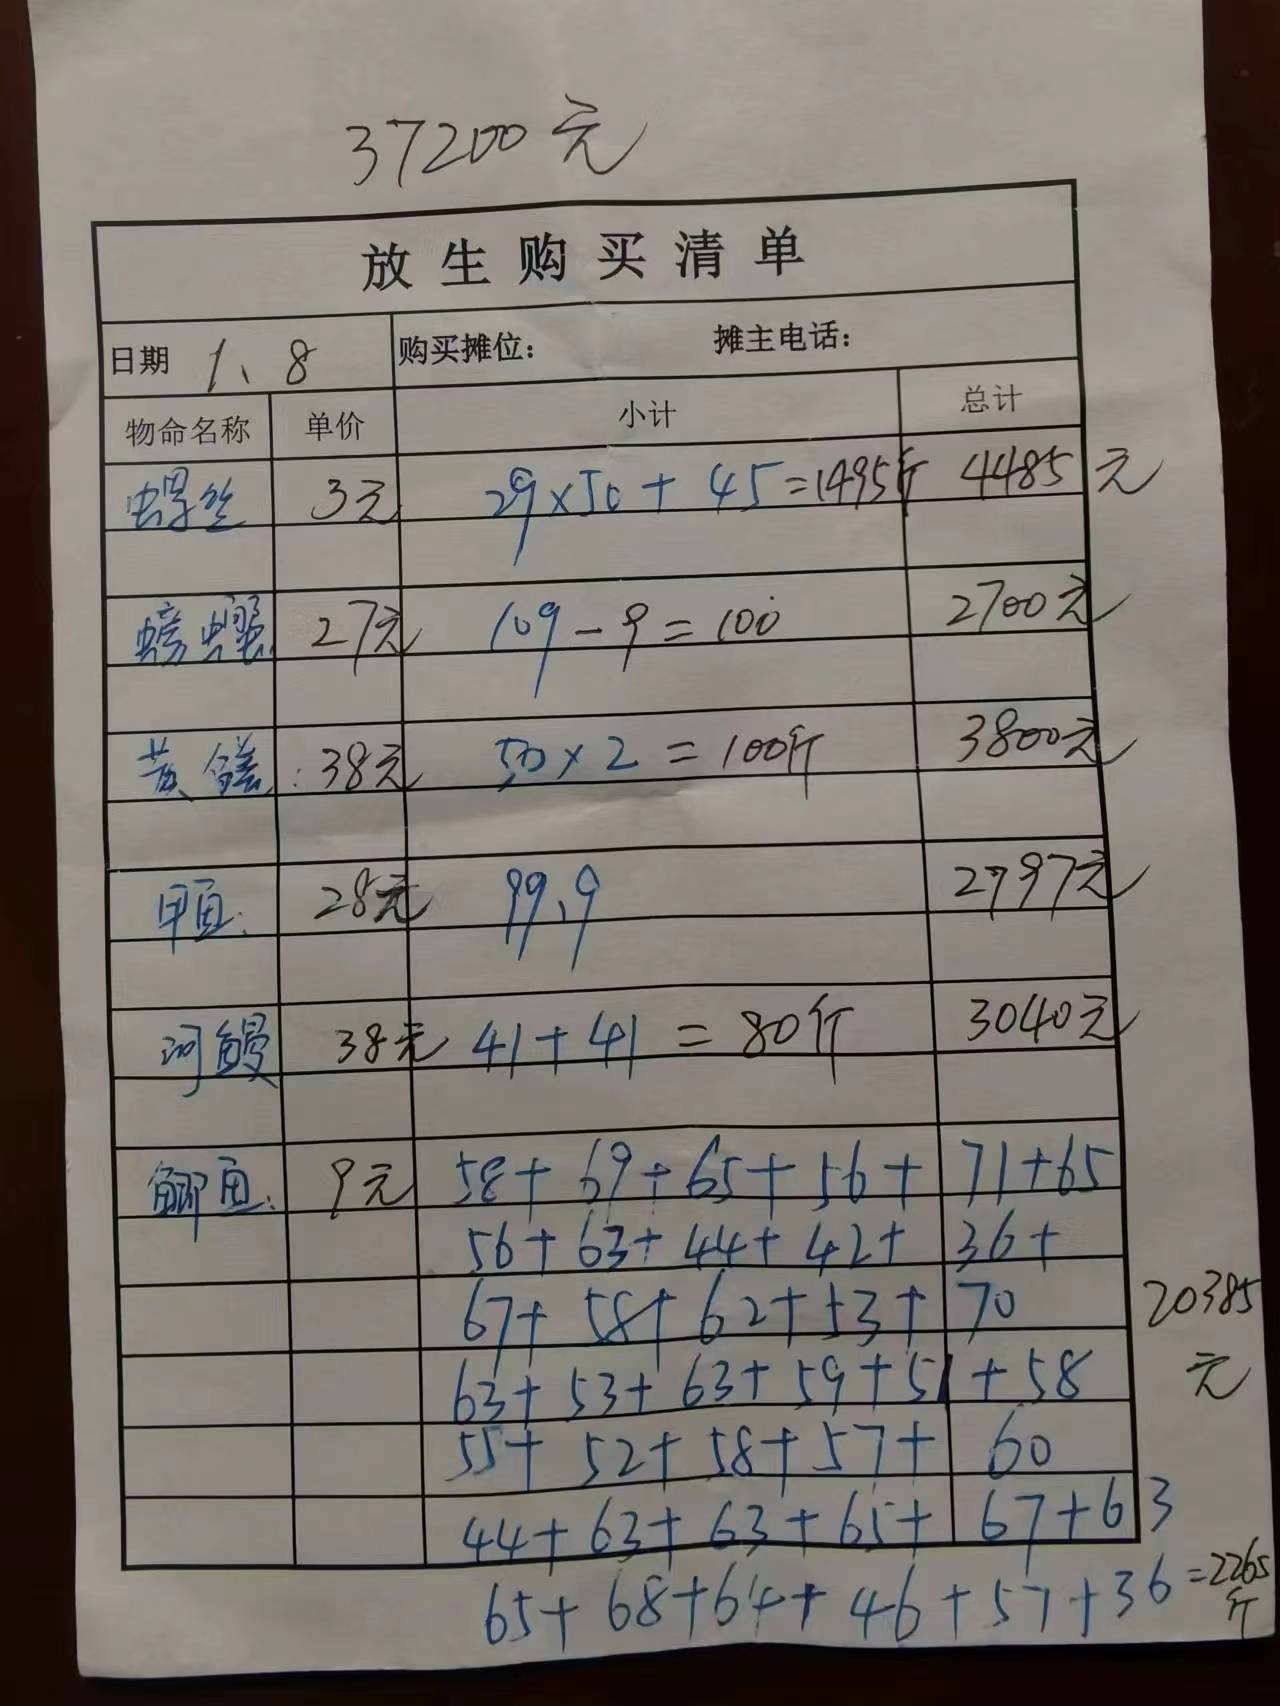 37200元
放生购买清单
日期 1、8 购买摊位： 摊主电话：
物命名称 单价 小计 总计
螺丝 3元 29×50+45=1495斤 4485元
螃蟹 27元 109-9=100 2700元
黄鳝： 38元 50×2=100斤 3800元
甲鱼： 28元 99.9 2797元
河鳗 38元 41+41=80斤 3040元
鲫鱼： 9元 58+69+65+56+71+65
56+63+44+42+36+
67+58+62+53+70
20385
63+53+63+59+51+58
元
55+52+58+57+60
44+63+63+65+67+63
65+68+64+46+57+36=2265斤